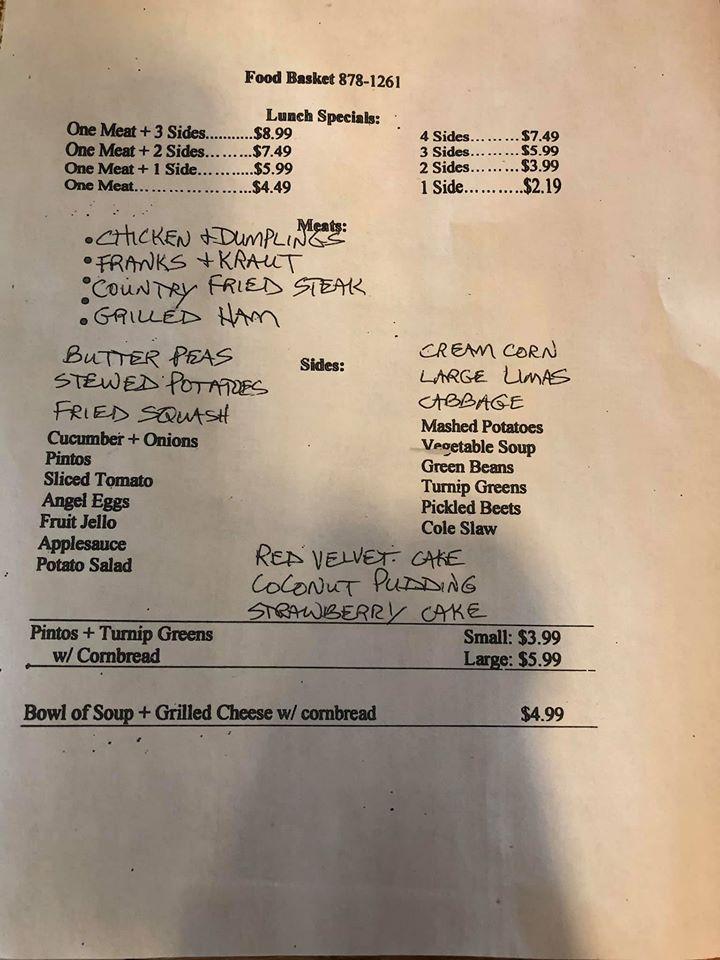 Food Basket 878-1261
Lunch Specials:
One Meat + 3 Sides...........$8.99
One Meat + 2 Sides.........$7.49
One Meat + 1 Side............$5.99
One Meat.......................$4.49
4 Sides.........$7.49
3 Sides.........$5.99
2 Sides.........$3.99
1 Side...........$2.19
Meats:
• CHICKEN + DUMPLINGS
• FRANKS + KRAUT
• COUNTRY FRIED STEAK
• GRILLED HAM
Sides:
BUTTER PEAS
STEWED POTATOES
FRIED SQUASH
Cucumber + Onions
Pintos
Sliced Tomato
Angel Eggs
Fruit Jello
Applesauce
Potato Salad
CREAM CORN
LARGE LIMAS
CABBAGE
Mashed Potatoes
Vegetable Soup
Green Beans
Turnip Greens
Pickled Beets
Cole Slaw
RED VELVET CAKE
COCONUT PUDDING
STRAWBERRY CAKE
Pintos + Turnip Greens Small: $3.99
w/ Cornbread Large: $5.99
Bowl of Soup + Grilled Cheese w/ cornbread $4.99